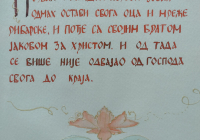 ОДМАХ ОСТАВИ СВОГА ОЦА И МРЕЖЕ
РИБАРСКЕ, И ПОЂЕ СА СВОЈИМ БРАТОМ
ЈАКОВОМ ЗА ХРИСТОМ. И ОД ТАДА
СЕ ВИШЕ НИЈЕ ОДВАЈАО ОД ГОСПОДА
СВОГА ДО КРАЈА.